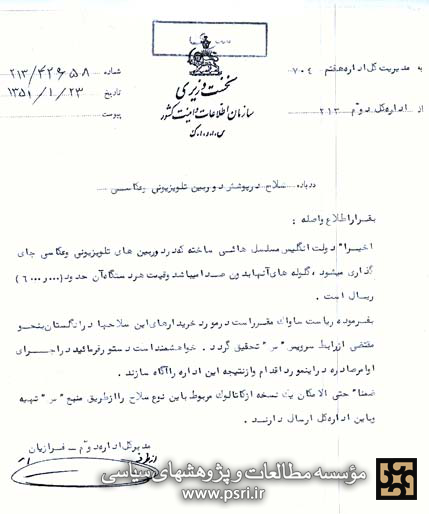 نخست وزیری
سازمان اطلاعات و امنیت کشور
س.ا.و.ا.ک
به مدیریت کل اداره هفتم ۷۰۴
از اداره کل دوم ۲۱۳
شماره ۲۱۳/۴۲۶۵۸
تاریخ ۱۳۵۱/۱/۲۳
پیوست
درباره سلاح درپوشش دوربین تلویزیونی وعکاسی
بقراراطلاع واصله :
اخیرا" دولت انگلیس مسلسل هائی ساخته که در دوربین های تلویزیونی وعکاسی جای
گذاری میشود ، گلوله های آنها بدون صدا میباشد وقیمت هر دستگاه آن حدود (۶۰۰۰۰۰)
ریال است .
بفرموده ریاست ساواک مقرراست درمورد خریدارهای این سلاحها درانگلستان بنحو
مقتضی ازرابط سرویس "س" تحقیق گردد . خواهشمنداست دستورفرمائید دراجرای
اوامرصادره دراینمورد اقدام وازنتیجه این اداره راآگاه سازند .
ضمنا" حتی الامکان یک نسخه ازکاتالوگ مربوط باین نوع سلاح راازطریق منبع "س" تهیه
وباین اداره کل ارسال دارند .
مدیرکل اداره دوم - فرازیان
ازطرف
مؤسسه مطالعات و پژوهشهای سیاسی
www.psri.ir